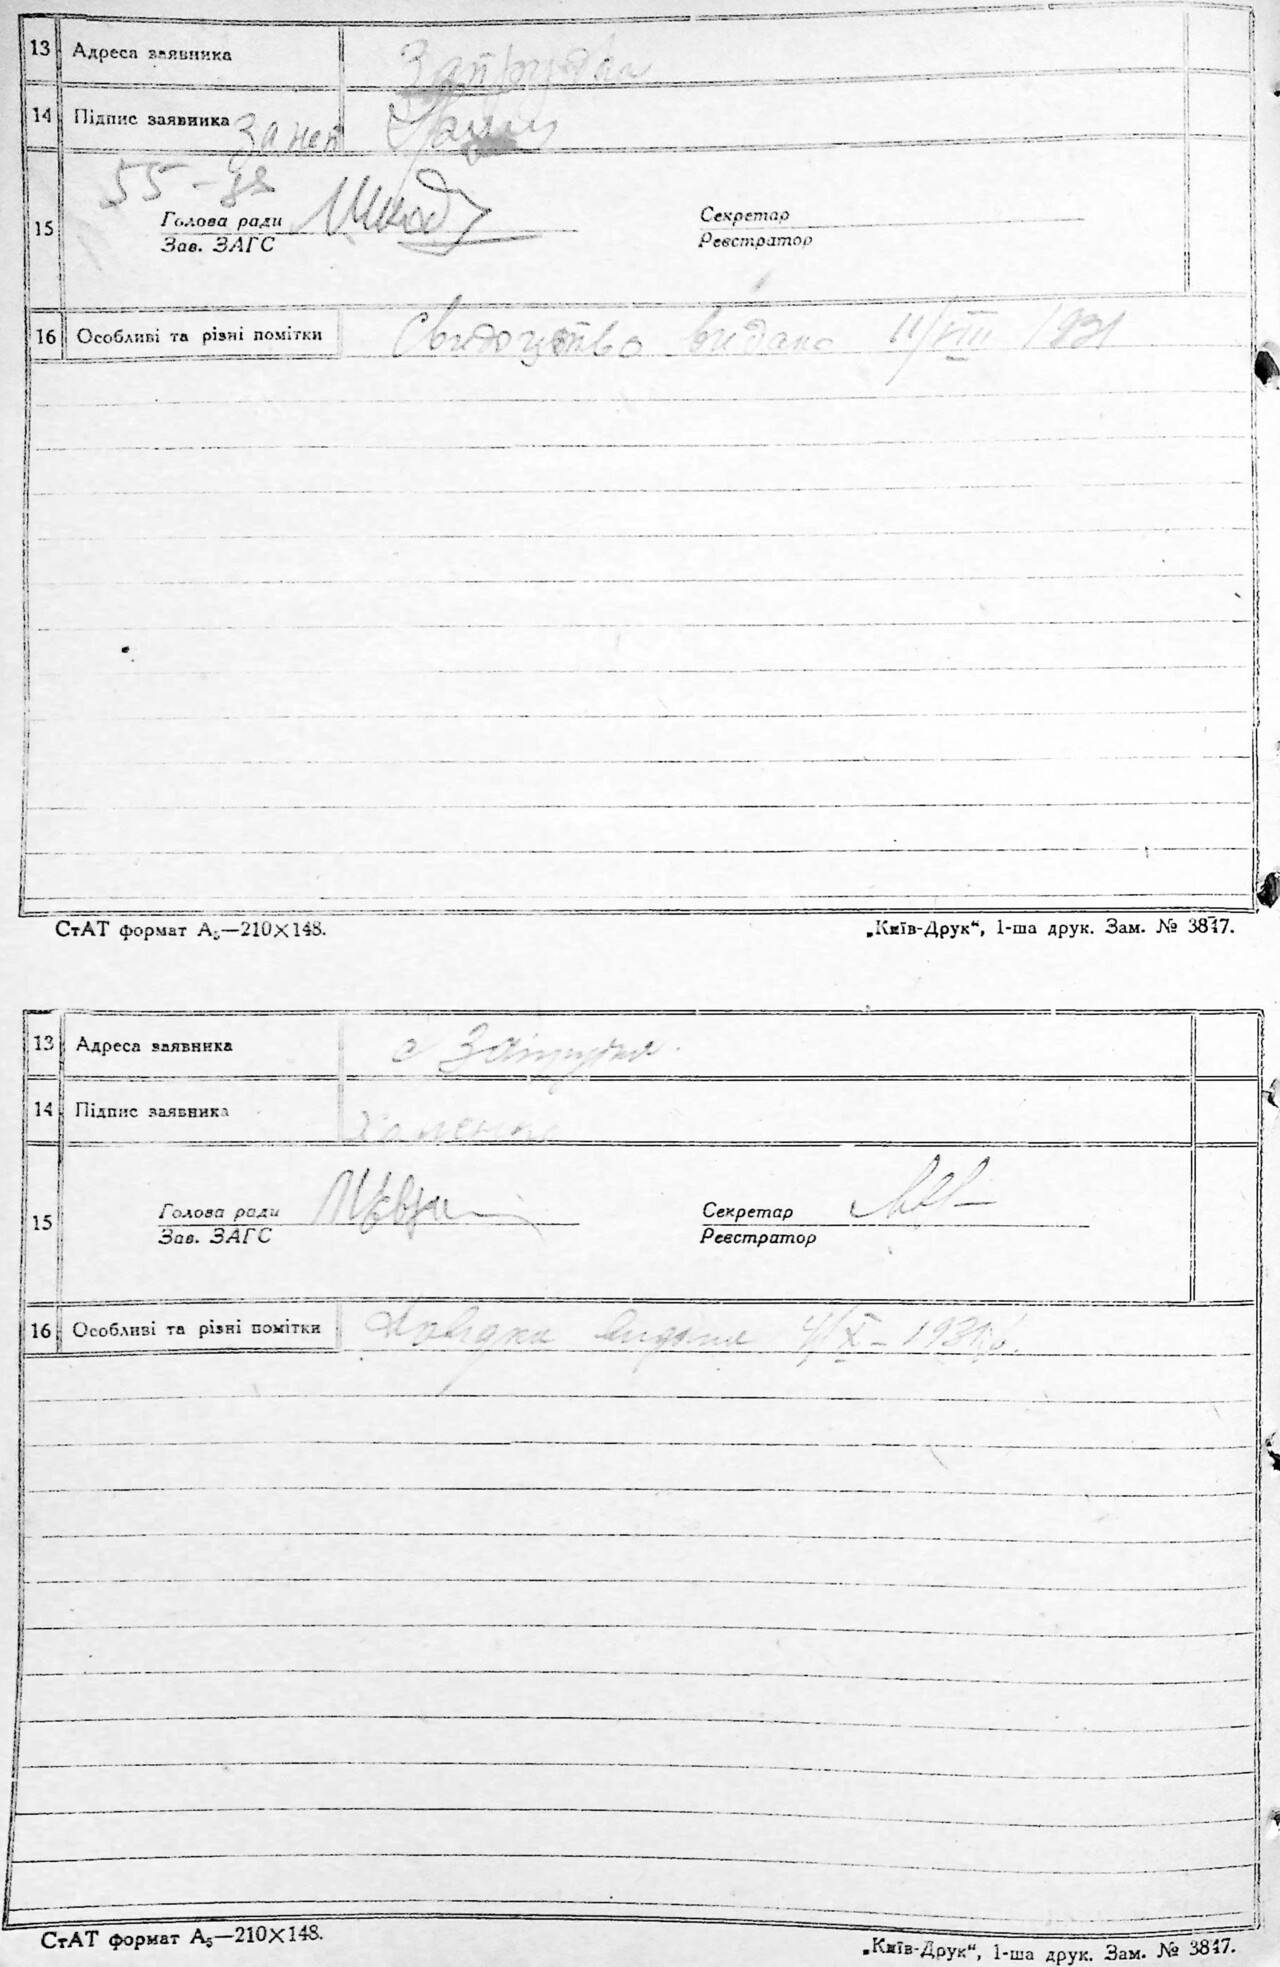 13 Адреса заявника Запрудка
14 Підпис заявника
За неп
55-
15 Голова ради Секретар
Зав. ЗАГС Реєстратор
16 Особливі та різні помітки Свидоцтво видано 11/VIII 1931
СтАТ формат А₅—210×148. „Київ-Друк“, 1-ша друк. Зам. № 3847.
13 Адреса заявника с Запрудка.
14 Підпис заявника
15 Голова ради Секретар
Зав. ЗАГС Реєстратор
16 Особливі та різні помітки Довідка видана 4/X-1931
СтАТ формат А₅—210×148. „Київ-Друк“, 1-ша друк. Зам. № 3847.